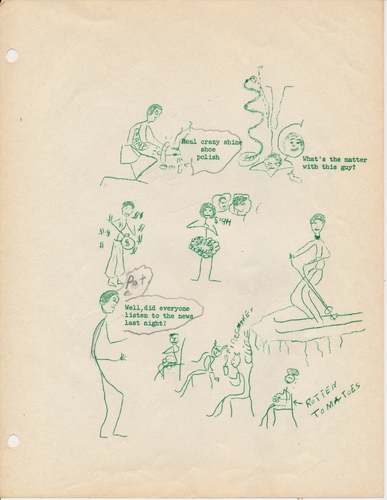 Real crazy shine
shoe
polish
What's the matter
with this guy?
SIGH
$
Pat
Well, did everyone
listen to the news
last night?
ROTTEN
TOMATOES